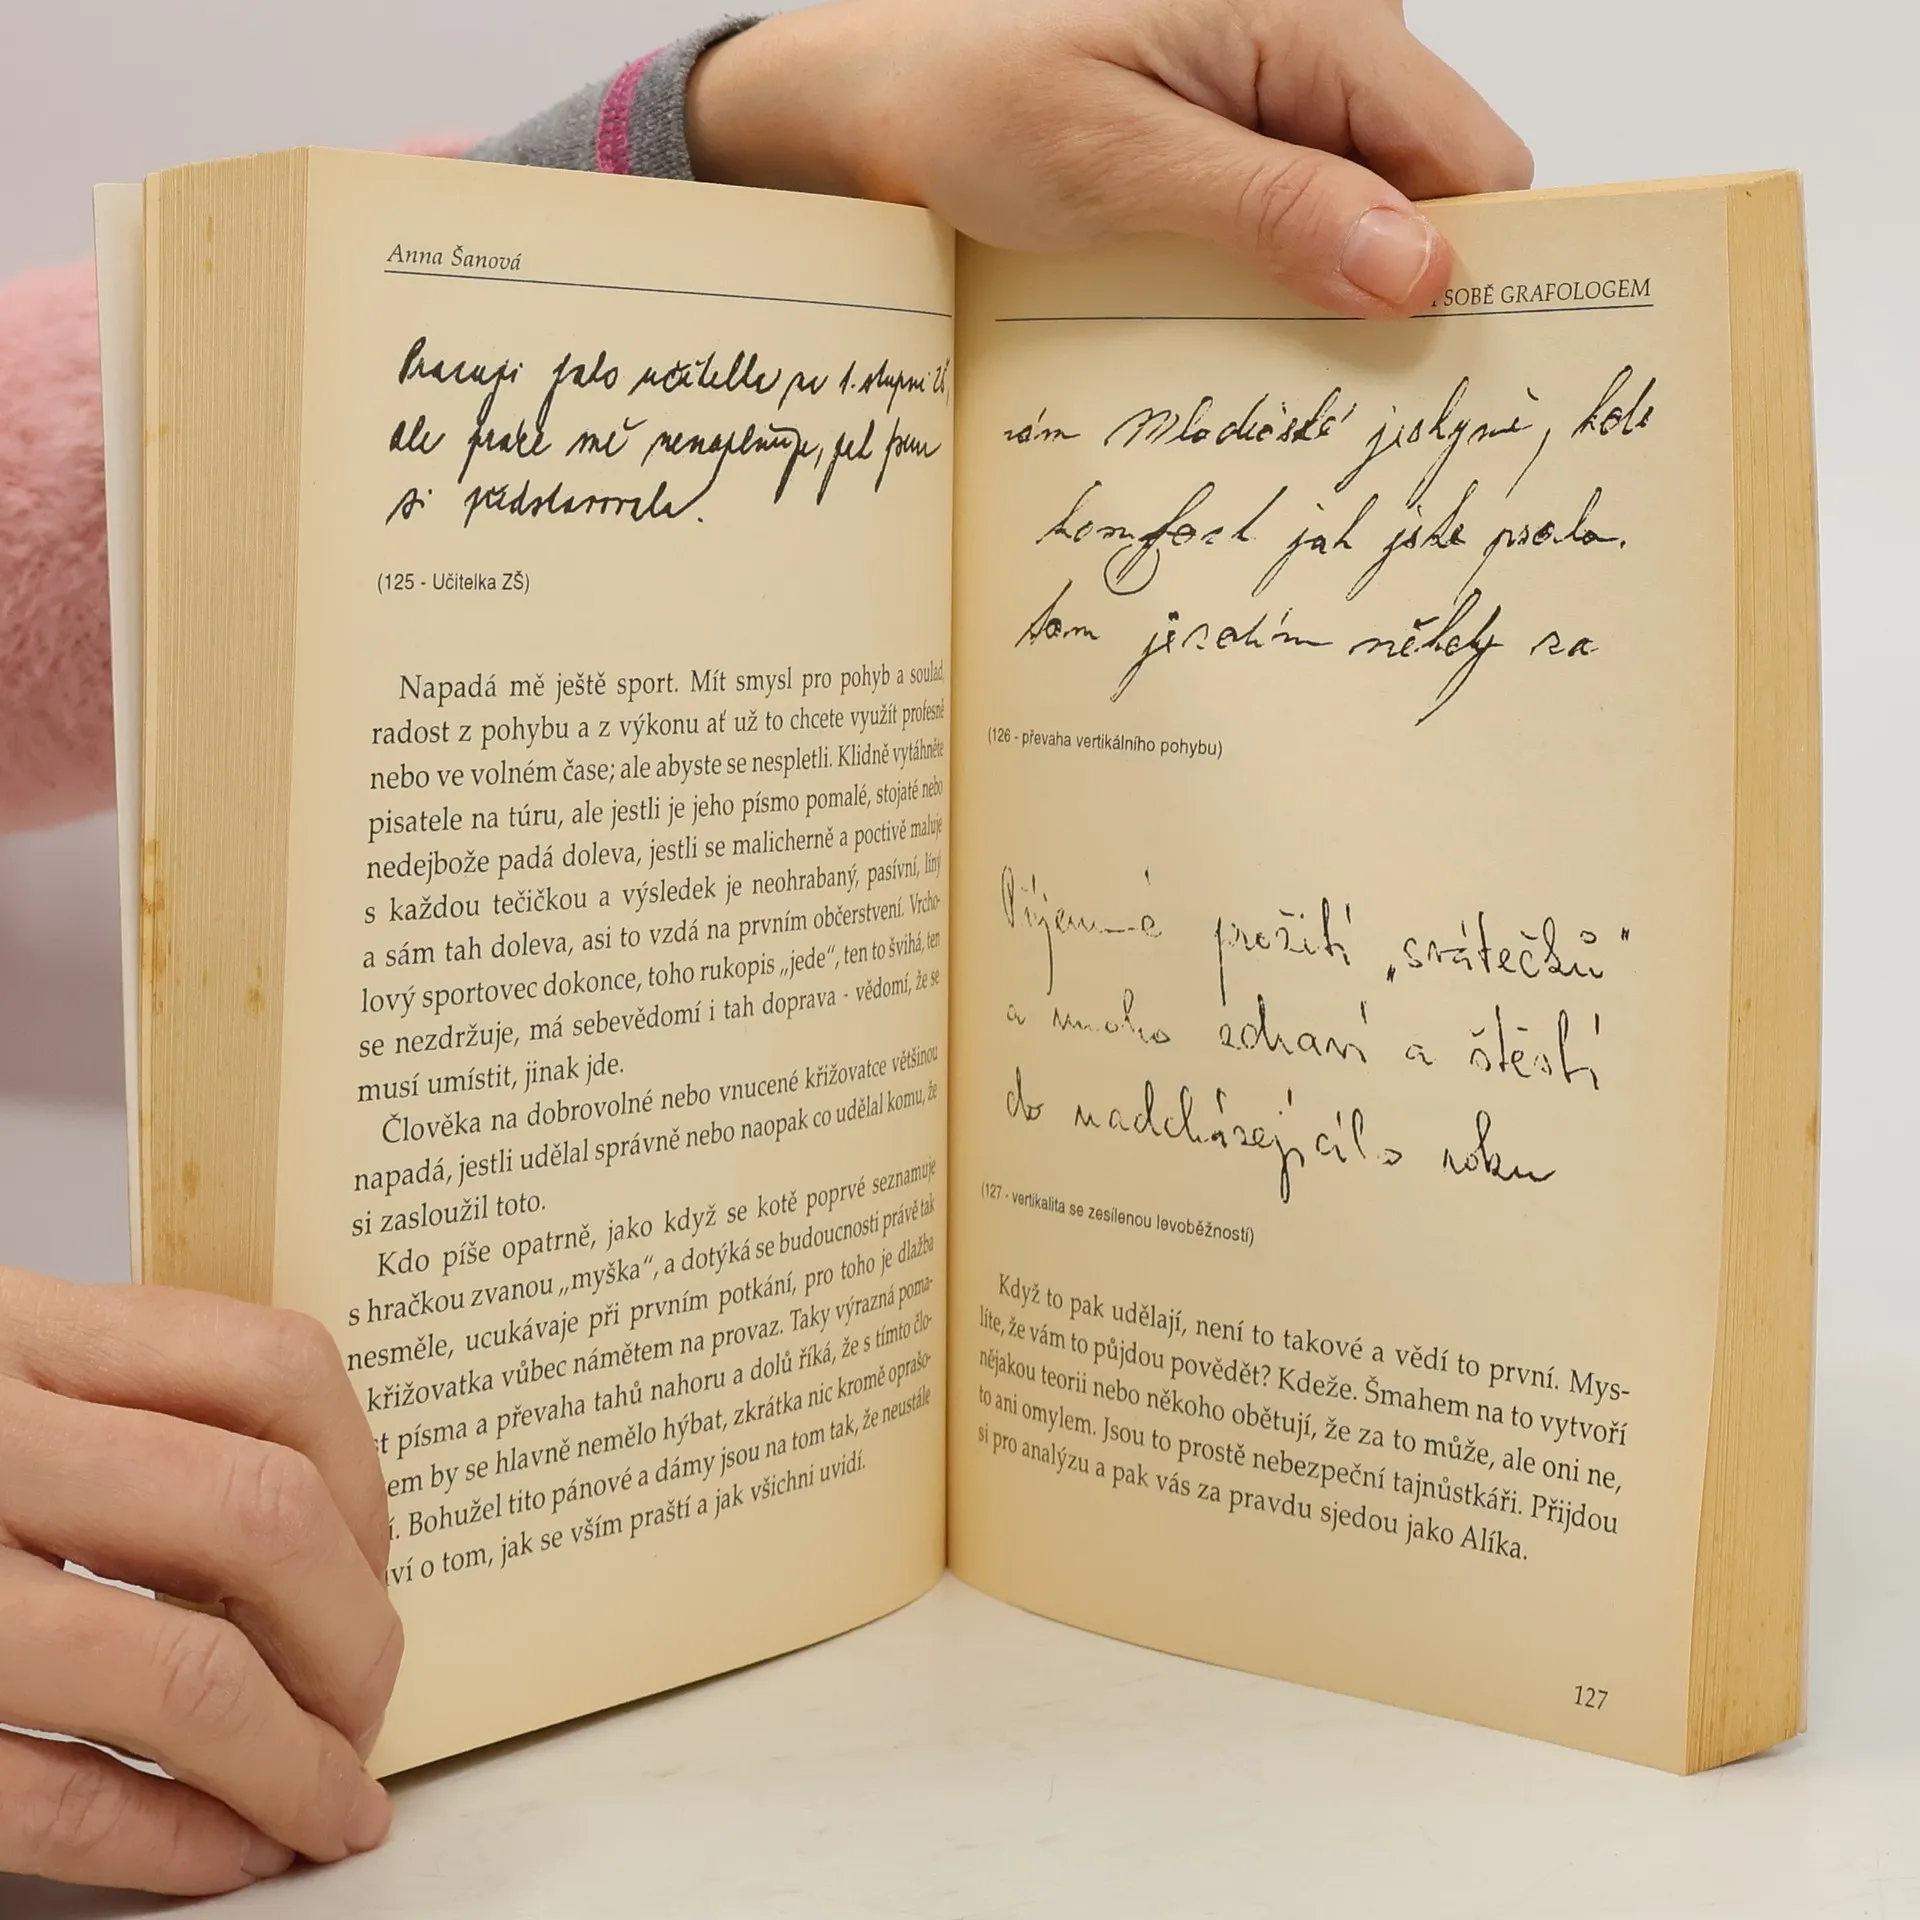 Anna Šanová
Pracuji jako učitelka na 1. stupni ZŠ,
ale práce mě nenaplňuje, jak jsem
si představovala.
(125 - Učitelka ZŠ)
Napadá mě ještě sport. Mít smysl pro pohyb a soulad,
radost z pohybu a z výkonu ať už to chcete využít profesně
nebo ve volném čase; ale abyste se nespletli. Klidně vytáhněte
pisatele na túru, ale jestli je jeho písmo pomalé, stojaté nebo
nedejbože padá doleva, jestli se malicherně a poctivě maluje
s každou tečičkou a výsledek je neohrabaný, pasívní, líný
a sám tah doleva, asi to vzdá na prvním občerstvení. Vrcho-
lový sportovec dokonce, toho rukopis „jede“, ten to švihá, ten
se nezdržuje, má sebevědomí i tah doprava - vědomí, že se
musí umístit, jinak jde.
Člověka na dobrovolné nebo vnucené křižovatce většinou
napadá, jestli udělal správně nebo naopak co udělal komu, že
si zasloužil toto.
Kdo píše opatrně, jako když se kotě poprvé seznamuje
s hračkou zvanou „myška“, a dotýká se budoucnosti právě tak
nesměle, ucukávaje při prvním potkání, pro toho je dlažba
křižovatka vůbec námětem na provaz. Taky výrazná poma-
st písma a převaha tahů nahoru a dolů říká, že s tímto člo-
em by se hlavně nemělo hýbat, zkrátka nic kromě oprašo-
í. Bohužel tito pánové a dámy jsou na tom tak, že neustále
ví o tom, jak se vším praští a jak všichni uvidí.
SOBĚ GRAFOLOGEM
vám Mladečské jeskyně, kde
komfort jak jste psala.
tam jezdím někdy za
(126 - převaha vertikálního pohybu)
Příjemné prožití „svátečků“
a mnoho zdraví a štěstí
do nadcházejícího roku
(127 - vertikalita se zesílenou levoběžností)
Když to pak udělají, není to takové a vědí to první. Mys-
líte, že vám to půjdou povědět? Kdeže. Šmahem na to vytvoří
nějakou teorii nebo někoho obětují, že za to může, ale oni ne,
to ani omylem. Jsou to prostě nebezpeční tajnůstkáři. Přijdou
si pro analýzu a pak vás za pravdu sjedou jako Alíka.
127